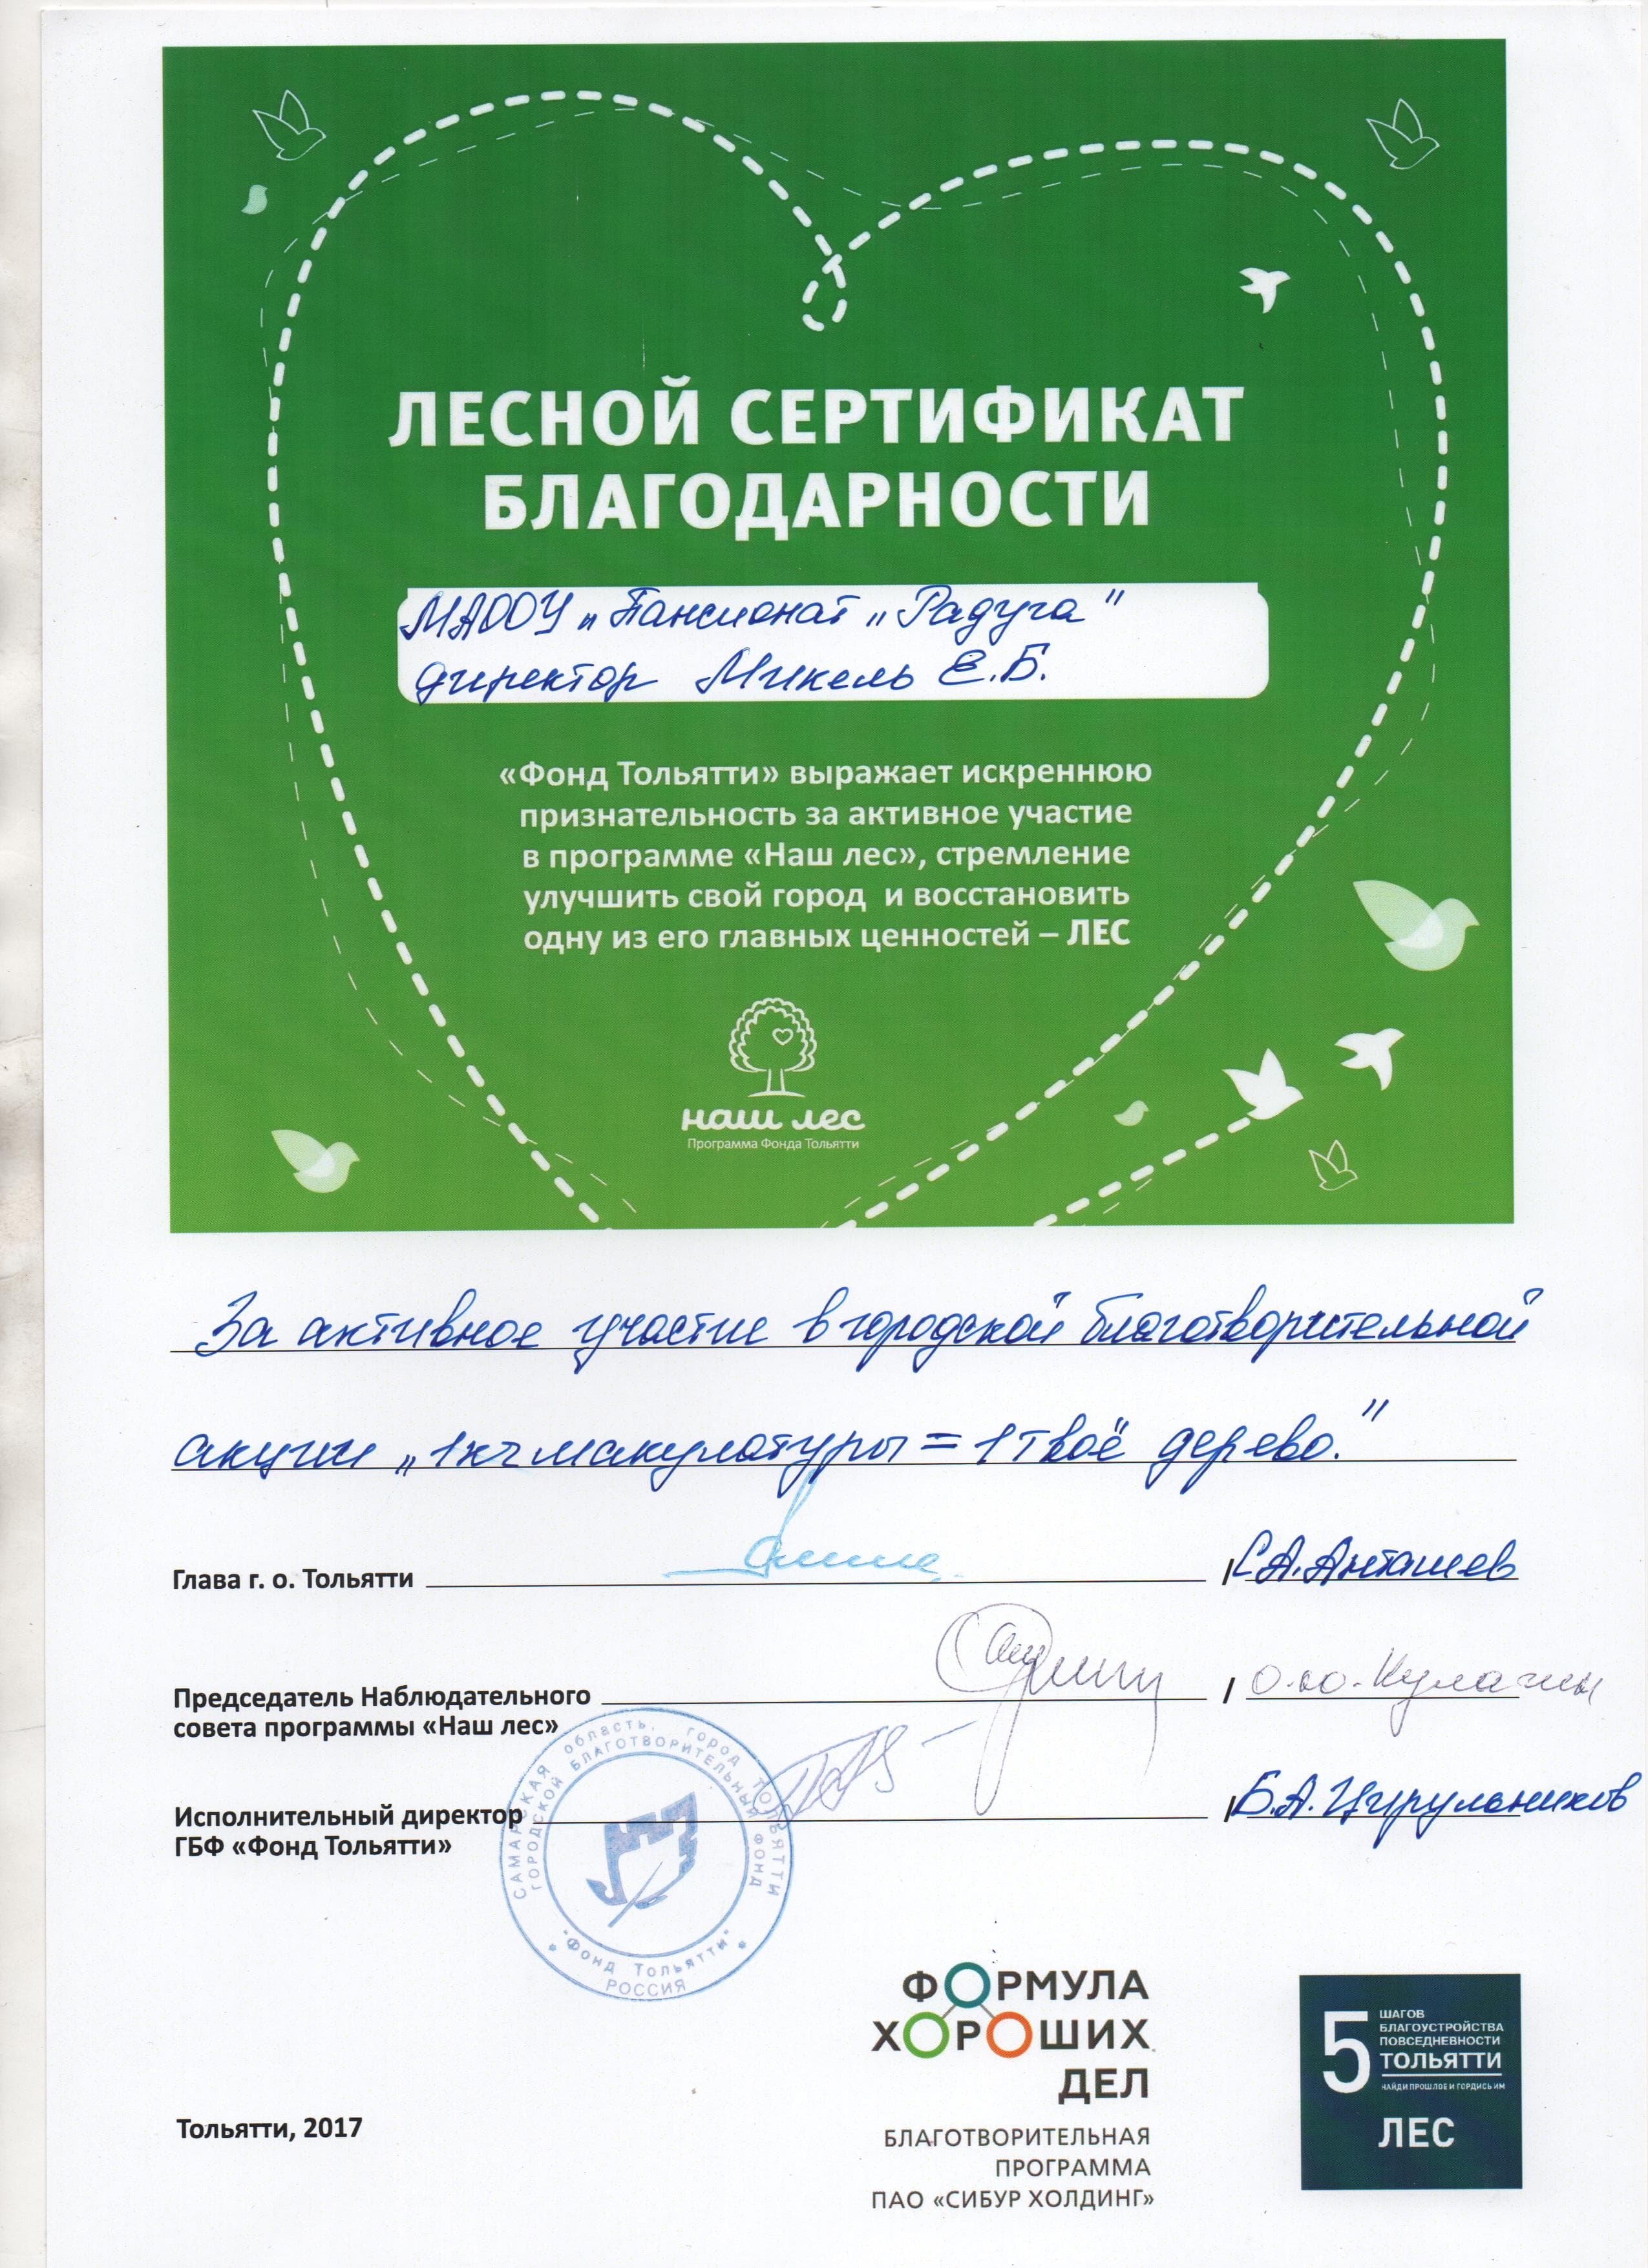 ЛЕСНОЙ СЕРТИФИКАТ
БЛАГОДАРНОСТИ
МАООУ „Пансионат „Радуга"
директор Микель Е.Б.
«Фонд Тольятти» выражает искреннюю
признательность за активное участие
в программе «Наш лес», стремление
улучшить свой город и восстановить
одну из его главных ценностей – ЛЕС
наш лес
Программа Фонда Тольятти
За активное участие в городской благотворительной
акции „1кг макулатуры = 1 твоё дерево."
Глава г. о. Тольятти / С.А. Анташев
Председатель Наблюдательного / О.Ю.
совета программы «Наш лес»
Исполнительный директор / Б.А. Цирульников
ГБФ «Фонд Тольятти»
САМАРСКАЯ область, город ТОЛЬЯТТИ
ГОРОДСКОЙ БЛАГОТВОРИТЕЛЬНЫЙ ФОНД
"Фонд Тольятти"
РОССИЯ
ФОРМУЛА
ХОРОШИХ
ДЕЛ
БЛАГОТВОРИТЕЛЬНАЯ
ПРОГРАММА
ПАО «СИБУР ХОЛДИНГ»
5 ШАГОВ
БЛАГОУСТРОЙСТВА
ПОВСЕДНЕВНОСТИ
ТОЛЬЯТТИ
НАЙДИ ПРОШЛОЕ И ГОРДИСЬ ИМ
ЛЕС
Тольятти, 2017